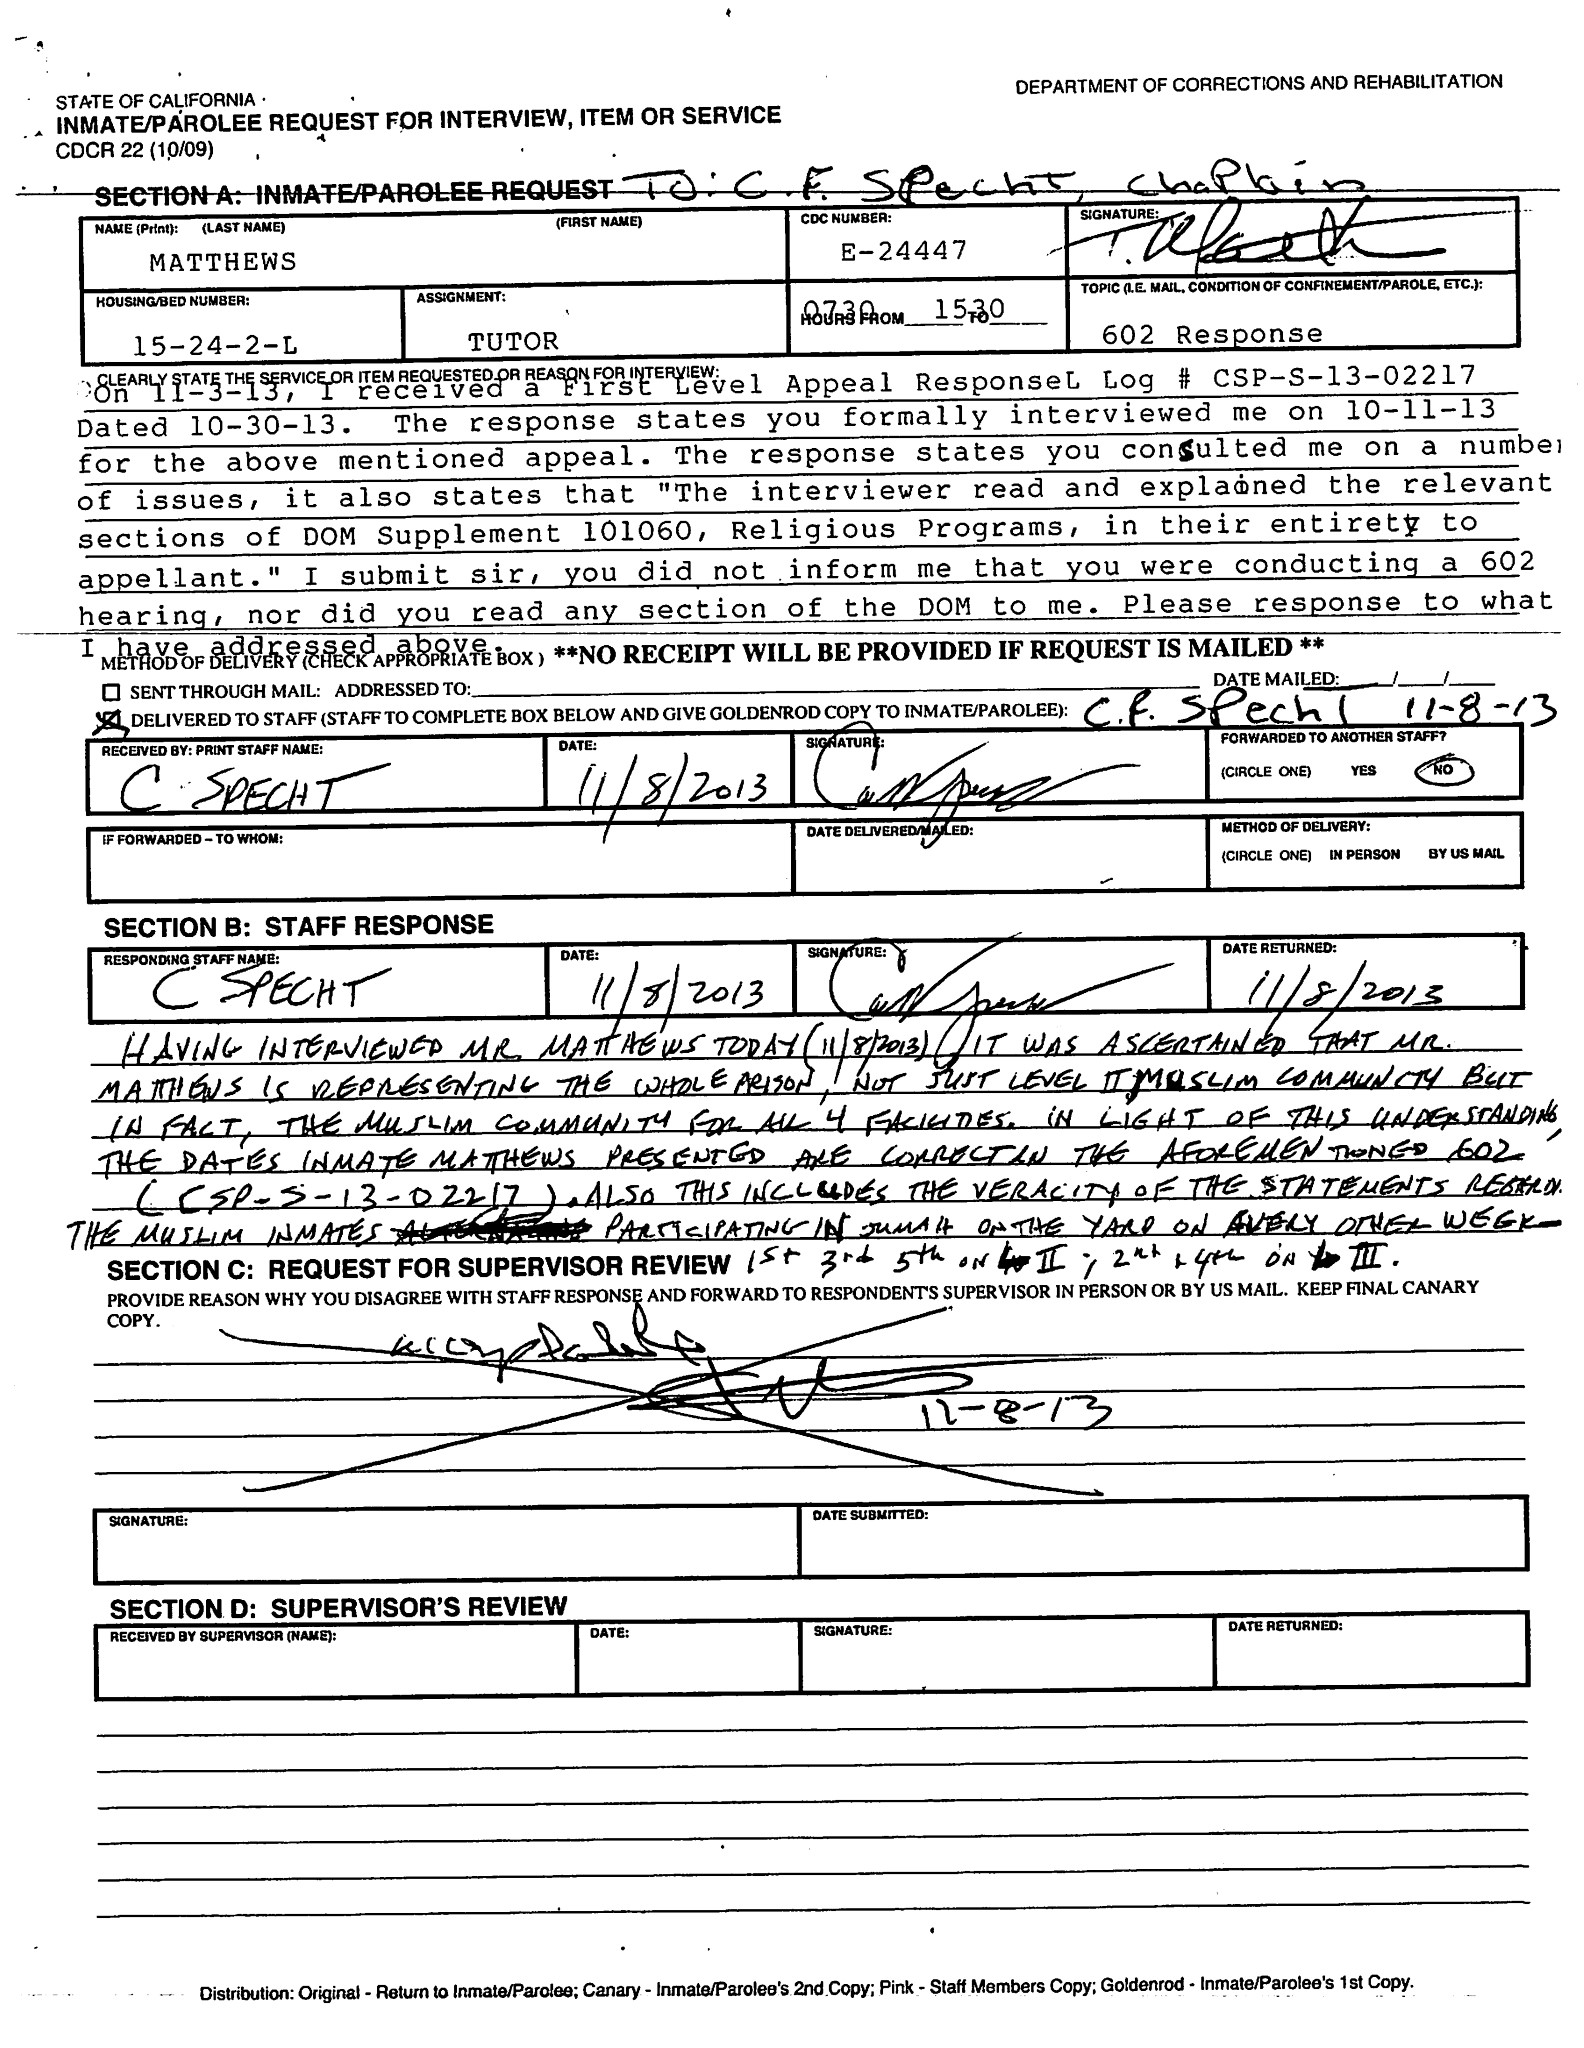 DEPARTMENT OF CORRECTIONS AND REHABILITATION
STATE OF CALIFORNIA
INMATE/PAROLEE REQUEST FOR INTERVIEW, ITEM OR SERVICE
CDCR 22 (10/09)
SECTION A: INMATE/PAROLEE REQUEST To: C.F. Specht, Chaplain
NAME (Print): (LAST NAME) (FIRST NAME) CDC NUMBER: SIGNATURE:
MATTHEWS E-24447
HOUSING/BED NUMBER: ASSIGNMENT: HOURS FROM 0730 TO 1530 TOPIC (I.E. MAIL, CONDITION OF CONFINEMENT/PAROLE, ETC.):
15-24-2-L TUTOR 602 Response
CLEARLY STATE THE SERVICE OR ITEM REQUESTED OR REASON FOR INTERVIEW:
On 11-3-13, I received a First Level Appeal ResponseL Log # CSP-S-13-02217
Dated 10-30-13. The response states you formally interviewed me on 10-11-13
for the above mentioned appeal. The response states you consulted me on a number
of issues, it also states that "The interviewer read and explained the relevant
sections of DOM Supplement 101060, Religious Programs, in their entirety to
appellant." I submit sir, you did not inform me that you were conducting a 602
hearing, nor did you read any section of the DOM to me. Please response to what
I have addressed above.
METHOD OF DELIVERY (CHECK APPROPRIATE BOX) **NO RECEIPT WILL BE PROVIDED IF REQUEST IS MAILED **
SENT THROUGH MAIL: ADDRESSED TO: DATE MAILED: / /
DELIVERED TO STAFF (STAFF TO COMPLETE BOX BELOW AND GIVE GOLDENROD COPY TO INMATE/PAROLEE): C.F. Specht 11-8-13
RECEIVED BY: PRINT STAFF NAME: DATE: SIGNATURE: FORWARDED TO ANOTHER STAFF?
C SPECHT 11/8/2013 (CIRCLE ONE) YES NO
IF FORWARDED – TO WHOM: DATE DELIVERED/MAILED: METHOD OF DELIVERY:
(CIRCLE ONE) IN PERSON BY US MAIL
SECTION B: STAFF RESPONSE
RESPONDING STAFF NAME: DATE: SIGNATURE: DATE RETURNED:
C SPECHT 11/8/2013 11/8/2013
HAVING INTERVIEWED MR. MATTHEWS TODAY (11/8/2013), IT WAS ASCERTAINED THAT MR.
MATTHEWS IS REPRESENTING THE WHOLE PRISON, NOT JUST LEVEL II MUSLIM COMMUNITY BUT
IN FACT, THE MUSLIM COMMUNITY FOR ALL 4 FACILITIES. IN LIGHT OF THIS UNDERSTANDING,
THE DATES INMATE MATTHEWS PRESENTED ARE CORRECT IN THE AFOREMENTIONED 602
(CSP-S-13-02217). ALSO THIS INCLUDES THE VERACITY OF THE STATEMENTS REGARDN.
THE MUSLIM INMATES PARTICIPATING IN JUMAH ON THE YARD ON EVERY OTHER WEEK
SECTION C: REQUEST FOR SUPERVISOR REVIEW 1st 3rd 5th ON II; 2nd + 4th ON III.
PROVIDE REASON WHY YOU DISAGREE WITH STAFF RESPONSE AND FORWARD TO RESPONDENT'S SUPERVISOR IN PERSON OR BY US MAIL. KEEP FINAL CANARY
COPY.
11-8-13
SIGNATURE: DATE SUBMITTED:
SECTION D: SUPERVISOR'S REVIEW
RECEIVED BY SUPERVISOR (NAME): DATE: SIGNATURE: DATE RETURNED:
Distribution: Original - Return to Inmate/Parolee; Canary - Inmate/Parolee's 2nd Copy; Pink - Staff Members Copy; Goldenrod - Inmate/Parolee's 1st Copy.